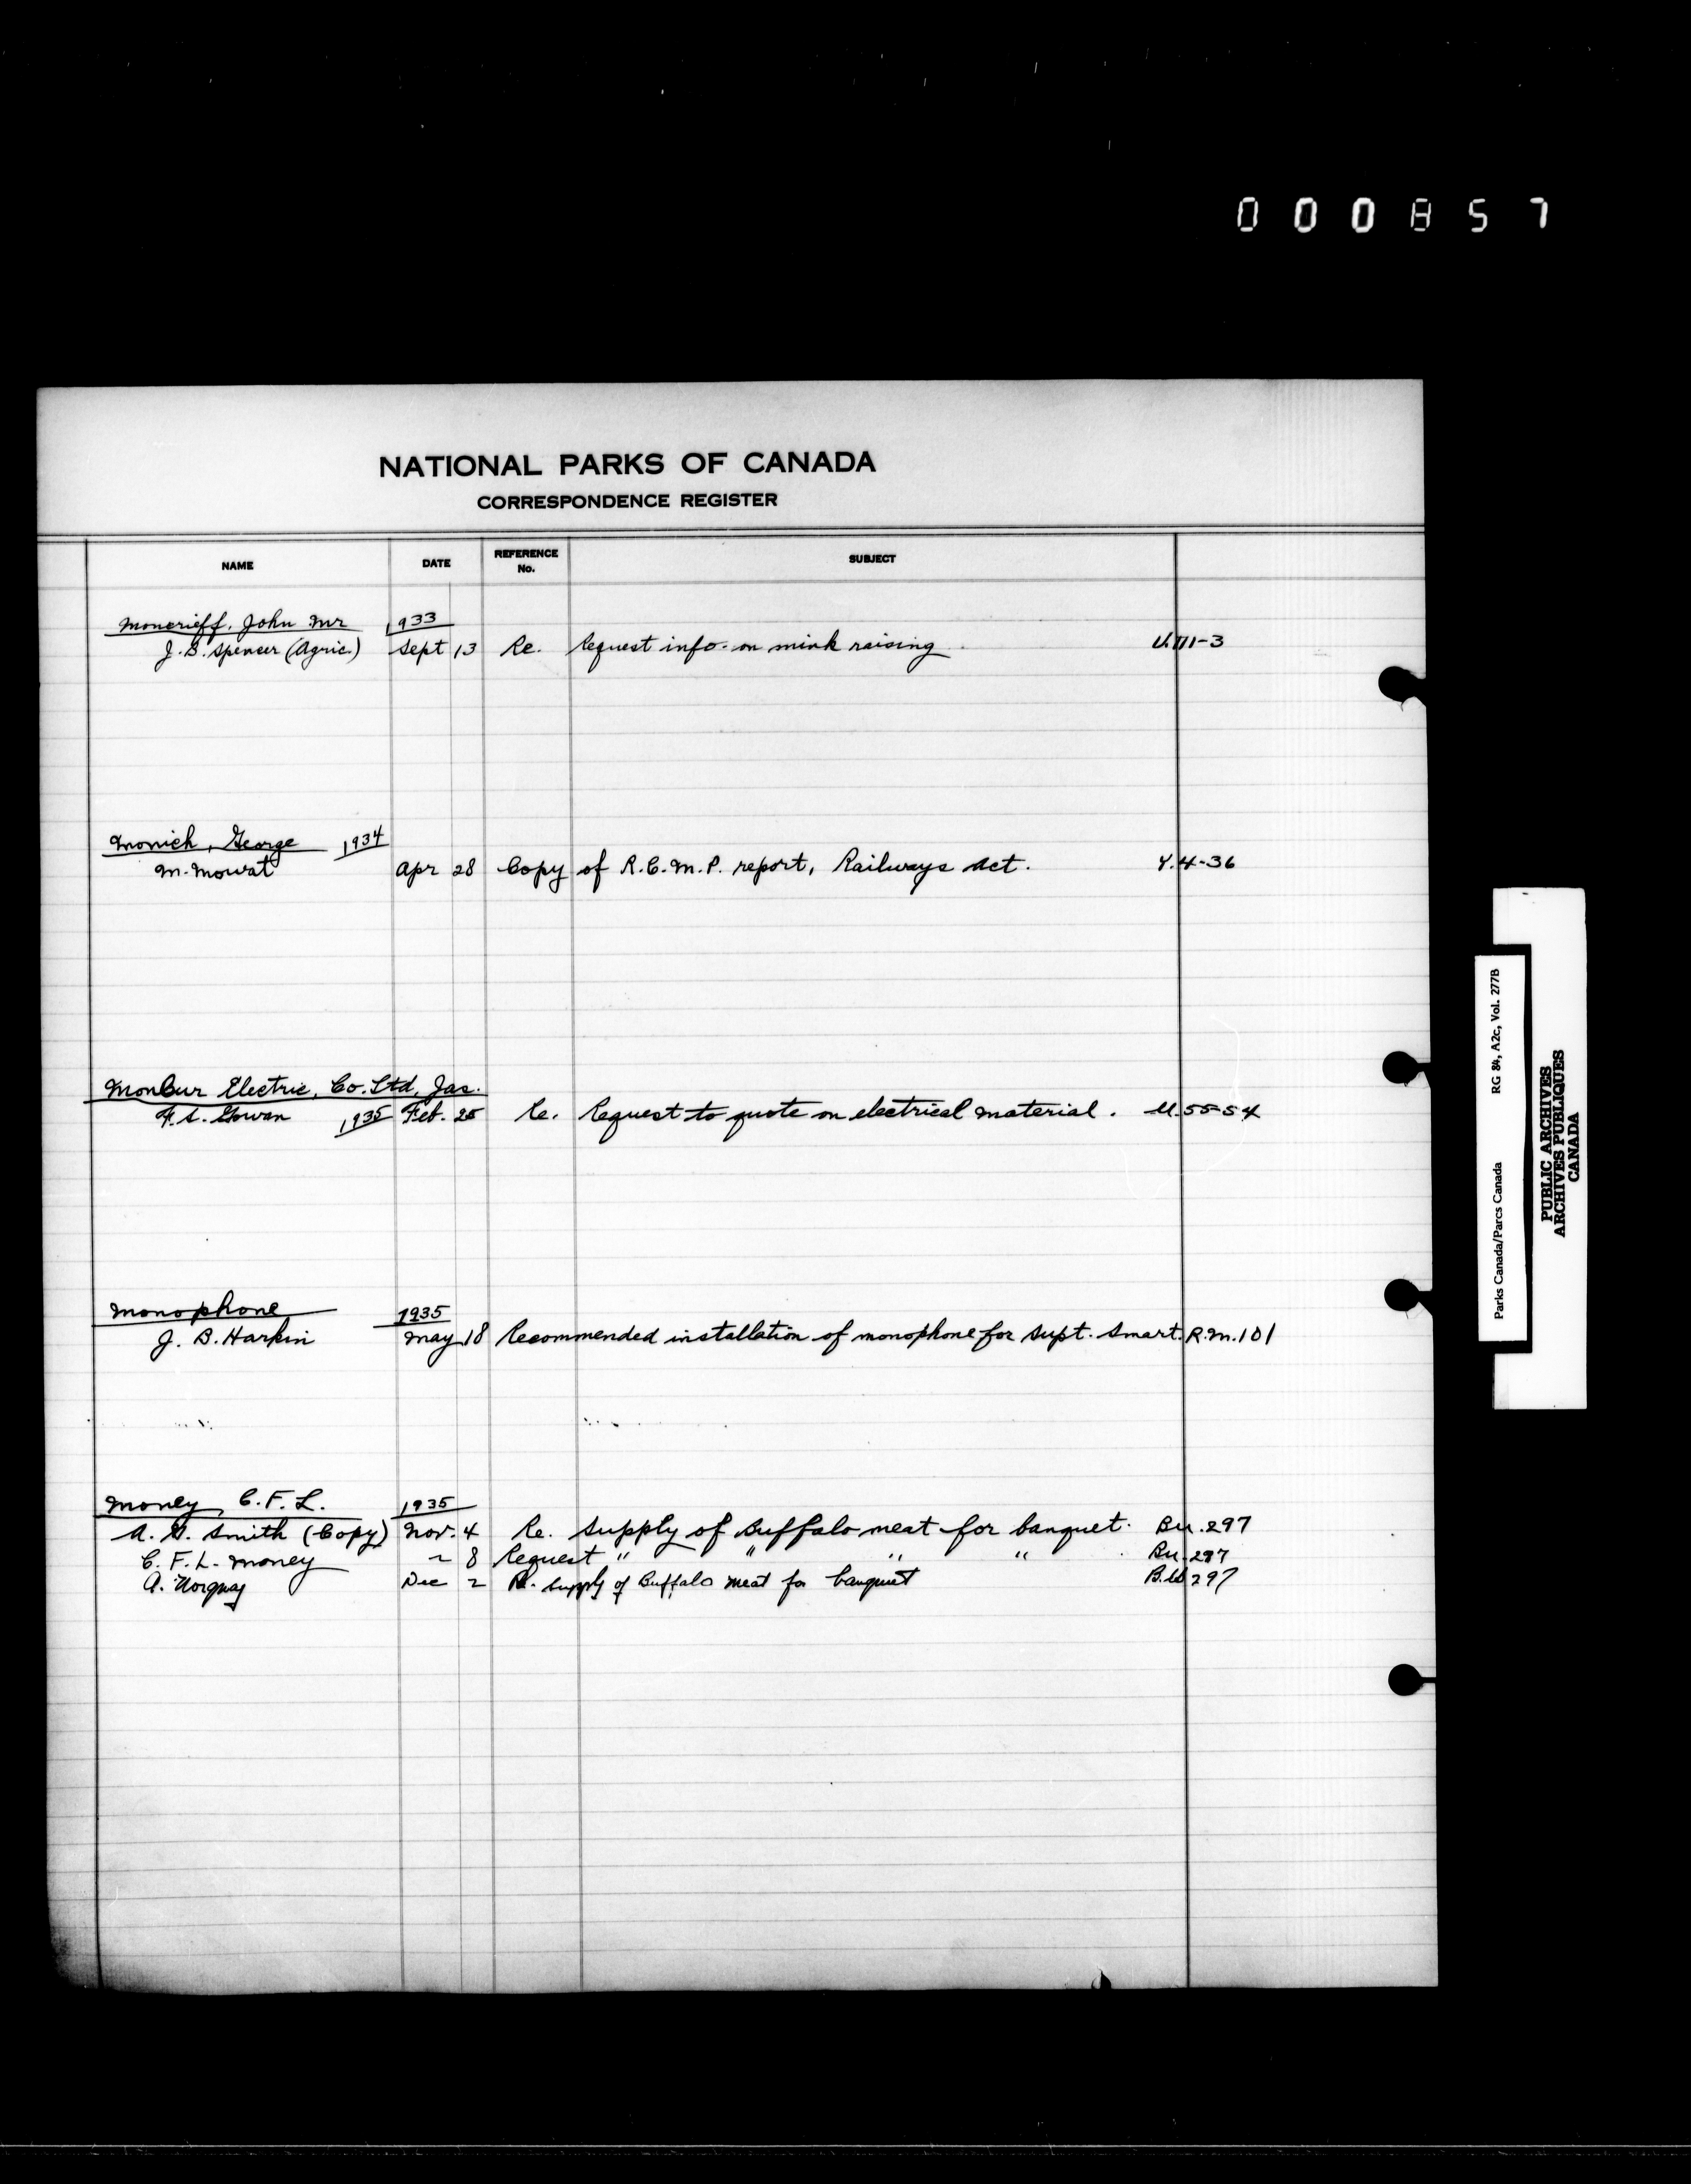 000857
NATIONAL PARKS OF CANADA
CORRESPONDENCE REGISTER
NAME DATE REFERENCE No. SUBJECT
Moncrieff, John Mr 1933
J. B. Spencer (Agric.) Sept 13 Re. Request info. on mink raising U.111-3
Monich, George 1934
M. Mowat Apr 28 Copy of R.C.M.P. report, Railways Act. Y.4-36
Electric, Co. Ltd, Jas.
Gowan 1935 Feb. 25 Re. Request to quote on electrical material. U.55-54
Monophone 1935
J. B. Harkin May 18 Recommended installation of monophone for Supt. Smart. R.M.101
Money, C. F. L. 1935
A. G. Smith (Copy) Nov. 4 Re. Supply of Buffalo meat for banquet. Bu.297
C. F. L. Money " 8 Request " " " " Bu.297
A. Norquay Dec 2 Re. Supply of Buffalo meat for banquet B.U 297
Parks Canada/Parcs Canada RG 84, A2c, Vol. 277B
PUBLIC ARCHIVES
ARCHIVES PUBLIQUES
CANADA